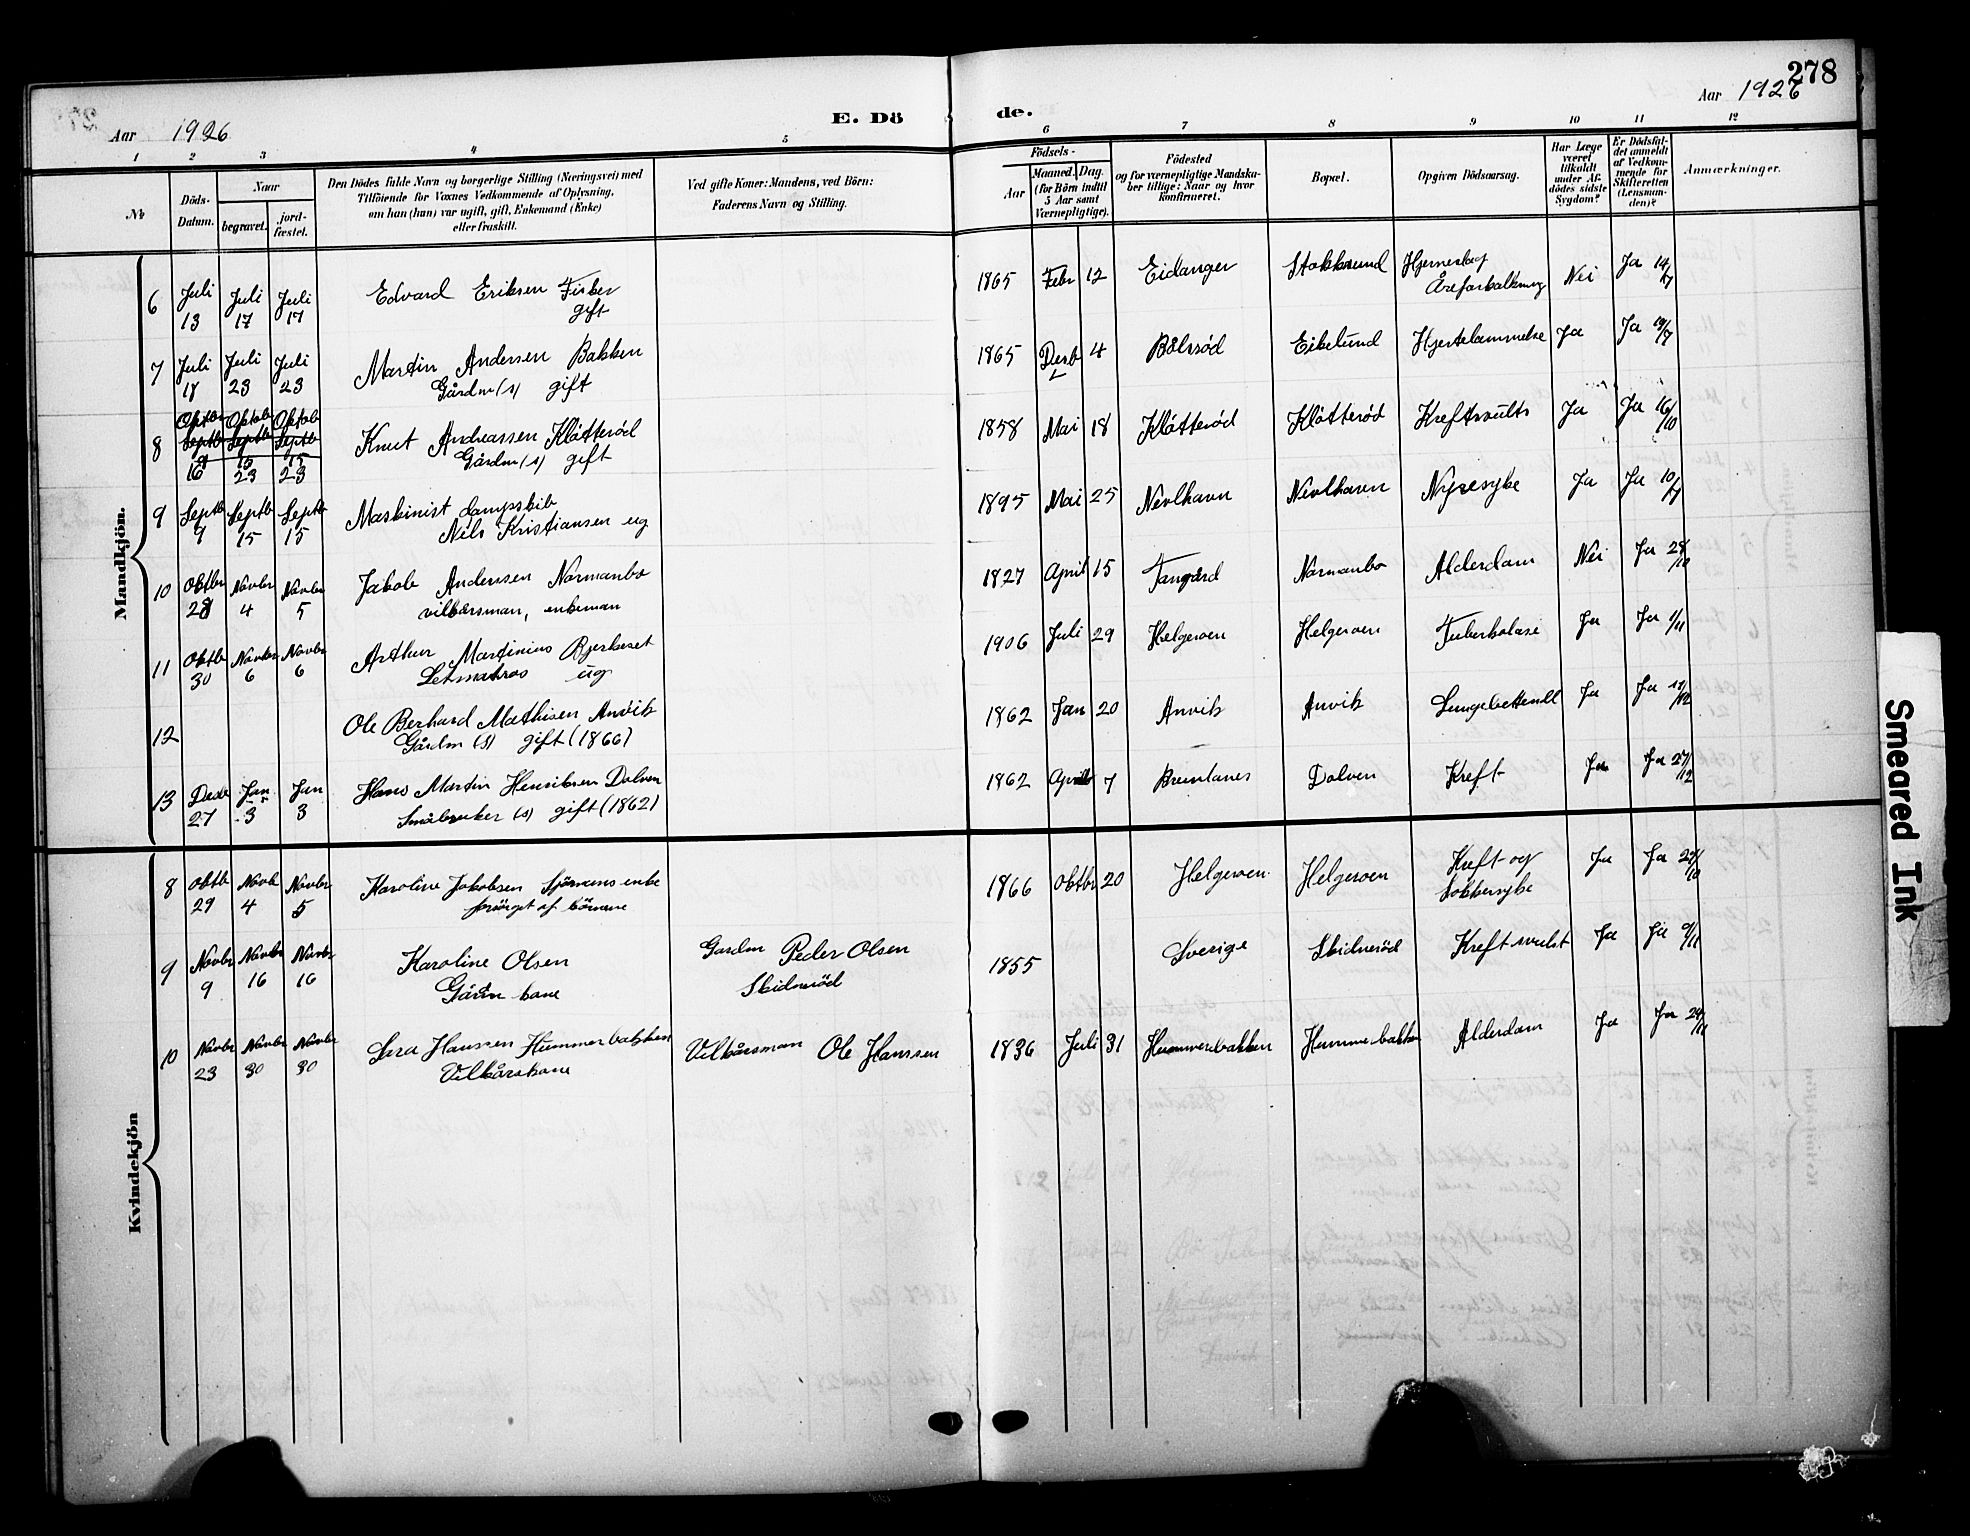 278
Aar 1926
E. Dö de.
Aar 1926
1 2 3 4 5 6 7 8 9 10 11 12
No
Döds-Datum.
Naar
begravet.
jord-fæstet.
Den Dödes fulde Navn og borgerlige Stilling (Næringsvei) med
Tilföiende for Voxnes Vedkommende af Oplysning,
om han (hun) var ugift, gift, Enkemand (Enke)
eller fraskilt.
Ved gifte Koner: Mandens, ved Börn:
Faderens Navn og Stilling.
Födsels-
Aar
Maaned. Dag.
(for Börn indtil
5 Aar samt
Værnepligtige).
Födested
og for værnepligtige Mandska-
ber tillige: Naar og hvor
konfirmeret.
Bopæl.
Opgiven Dödsaarsag.
Har Læge
været
tilkaldt
under Af-
dödes sidste
Sygdom?
Er Dödsfal-
det anmeldt
af Vedkom-
mende for
Skifteretten
(Lensman-
den)?
Anmærkninger.
Mandkjön.
6 Juli 13 Juli 17 Juli 17 Edvard Eriksen Fisker
gift
1865 Febr 12 Eidanger Stokksund Hjerneslag
Åreforkalkning Nei Ja 14/7
7 Juli 18 Juli 23 Juli 23 Martin Andersen Bakken
Gårdm (s) gift
1865 Desb 4 Bålsrød Eikelund Hjertelammelse Ja Ja 19/7
8 Oktbr Oktob Oktob
Septb Septb Septb
16 15 15
23 23
Knut Andreassen Kløtterød
Gårdm (s) gift
1858 Mai 18 Kløtterød Kløtterød Kreftsvulst Ja Ja 16/10
9 Septb 9 Septb 15 Septb 15 Maskinist dampskib
Nils Kristiansen ug
1895 Mai 25 Nevlhavn Nevlhaven Nyresyke Ja Ja 10/9
10 Oktbr 28 Novbr 4 Novbr 5 Jakob Anderssen Normanbo
vilkårsman, enkeman
1827 April 15 Tangård Normanbo Alderdom Nei Ja 28/10
11 Oktb 30 Novbr 6 Novbr 6 Arthur Martinius Bjerkeset
Letmatros ug
1906 Juli 29 Helgeroen Helgeroen Tuberkolose Ja Ja 1/11
12 Ole Berhard Mathisen Anvik
Gårdm (s) gift (1866)
1862 Jan 20 Anvik Anvik Lungebettendl Ja Ja
13 Dese 27 Jan 3 Jan 3 Hans Martin Henriksen Dolven
Småbruker (s) gift (1862)
1862 April 7 Bruntanes Dolven Kreft Ja Ja 27/12
Kvindekjön
8 Oktb 29 Novb 4 Novbr 5 Karoline Jakobsen Sjömans enke
forsörget af börnene
1866 Oktbr 20 Helgeroen Helgeroen Kreft og
Sokkersyke Ja Ja 29/10
9 Novbr 9 Novbr 16 Novbr 16 Karoline Olsen
Gårdm kone
Gardm Peder Olsen
Skidnerød
1855 Sverige Skidnerød Kreft svulst Ja Ja 9/11
10 Novbr 23 Novbr 30 Novbr 30 Sara Hanssen Hummerbakken
Vilkårskone
Vilkårsman Ole Hanssen
1836 Juli 31 Hummerbakken Hummerbakken Alderdom Ja Ja 24/11
Smeared Ink